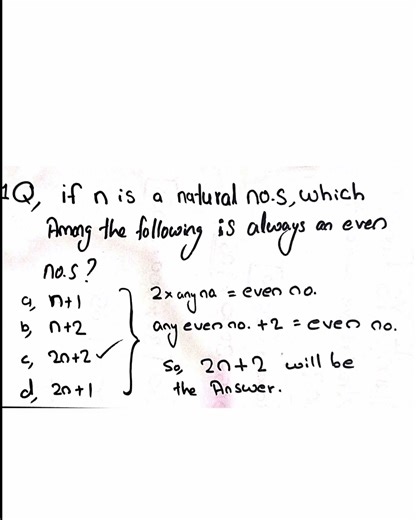 1Q, if n is a natural no.s, which
Among the following is always an even
no.s?
a, n+1
b, n+2
c, 2n+2 ✓
d, 2n+1
2x any no = even no.
any even no. +2 = even no.
So, 2n+2 will be
the Answer.